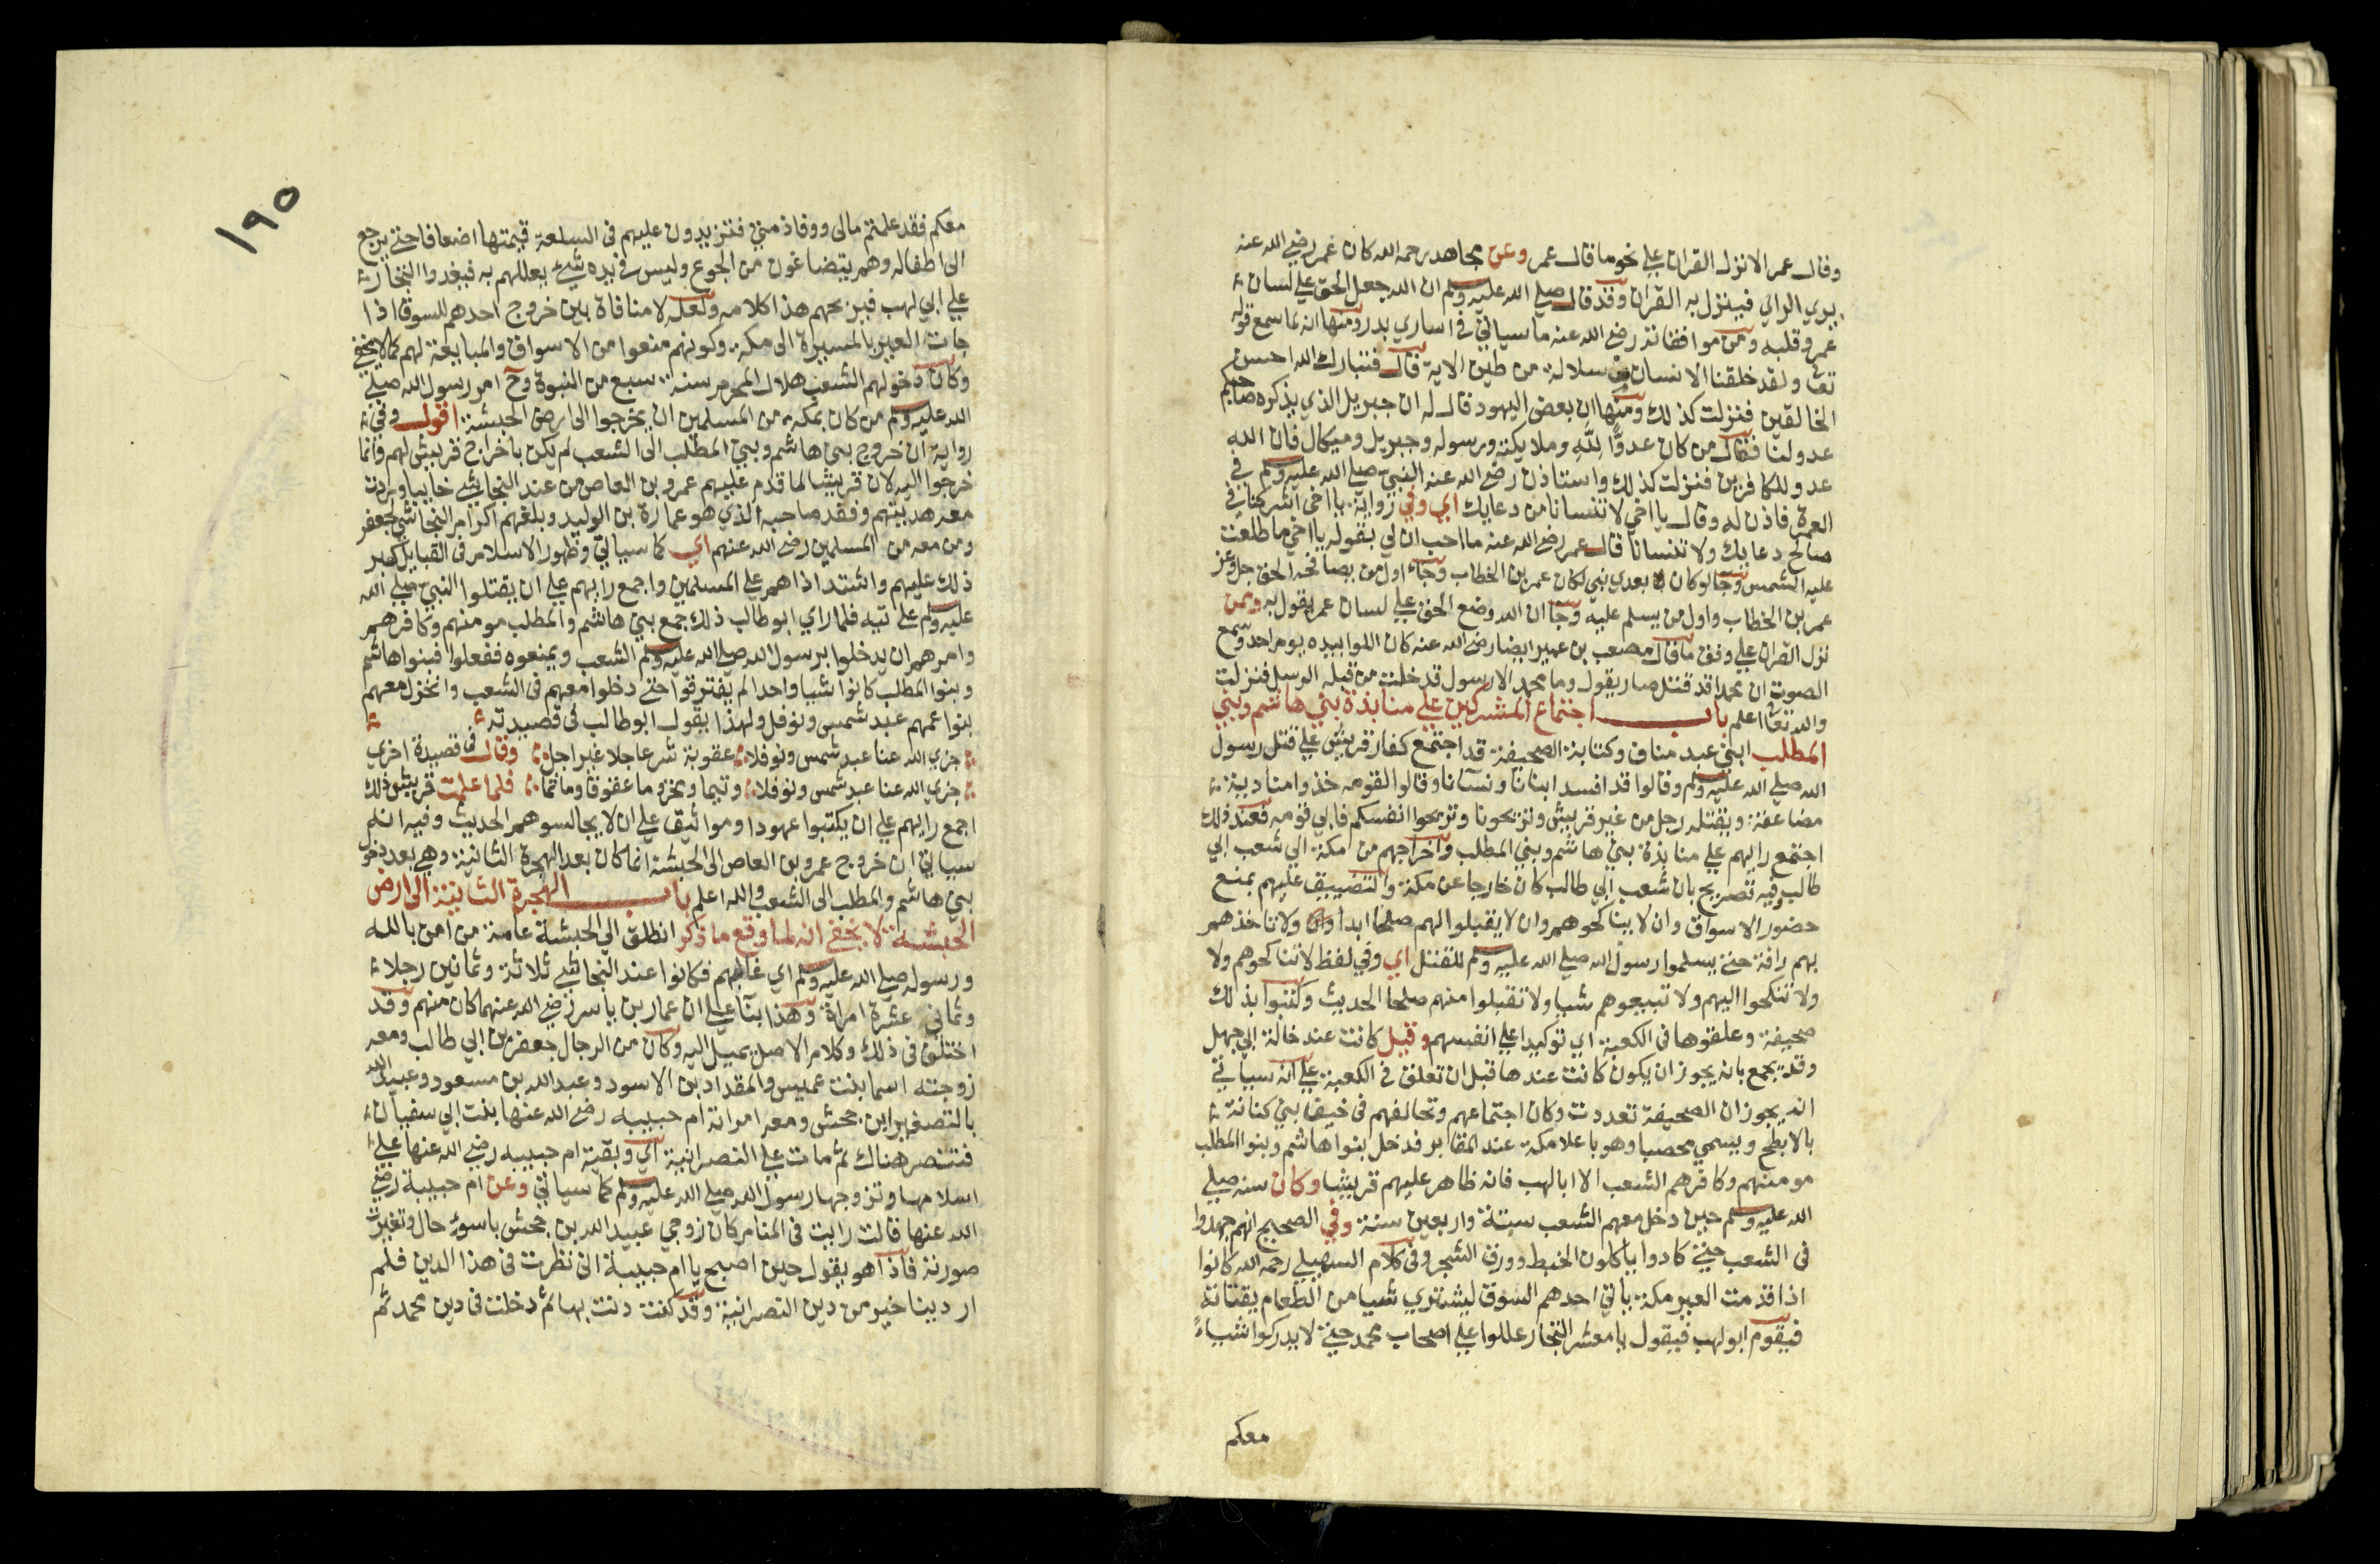 وقال عمر الا نزل القران علي نحو ما قال عمر وعن مجاهد رحمه الله كان عمر رضي الله عنه
يري الراي فينزل به القران وقد قال صلي الله عليه وسلم ان الله جعل الحق علي لسان
عمر وقلبه ومن موافقاته رضي الله عنه ما سياتي في اساري بدر ومنها انه لما سمع قوله
تعا ولقد خلقنا الانسان من سلالة من طين الاية قال فتبارك الله احسن
الخالقين فنزلت كذلك ومنها ان بعض اليهود قال له ان جبريل الذي يذكره صاحبكم
عدو لنا فقال من كان عدوا لله وملايكته ورسوله وجبريل وميكال فان الله
عدو للكافرين فنزلت كذلك واستاذن رضي الله عنه النبي صلي الله عليه وسلم في
العمرة فاذن له وقال يا اخي لا تنسانا من دعايك اي وفي رواية يا اخي اشركنا في
صالح دعايك ولا تنسانا قال عمر رضي الله عنه ما احب ان لي بقوله يا اخي ما طلعت
عليه الشمس وجا لو كان بعدي نبي لكان عمر بن الخطاب وجاء اول من يصافحه الحق جل وعز
عمر بن الخطاب واول من يسلم عليه وجا ان الله وضع الحق علي لسان عمر يقول به وممن
نزل القران علي وفق ما قال مصعب بن عمير ايضا رضي الله عنه كان اللوا بيده يوم احد وسمع
الصوت ان محمدا قد قتل صار يقول وما محمد الا رسول قد خلت من قبله الرسل فنزلت
والله تعا اعلم باب اجتماع المشركين علي منابذة بني هاشم وبني
المطلب ابني عبد مناف وكتابة الصحيفة قد اجتمع كفار قريش علي قتل رسول
الله صلي الله عليه وسلم وقالوا قد افسد ابناءنا ونساءنا وقالوا لقومه خذوا منا دية
مضاعفة ويقتله رجل من غير قريش وتريحونا وتريحوا انفسكم فابي قومه فعند ذلك
اجتمع رايهم علي منابذة بني هاشم وبني المطلب واخراجهم من مكة الي شعب ابي
طالب وفيه تصريح بان شعب ابي طالب كان خارجا عن مكة والتضييق عليهم بمنع
حضور الاسواق وان لا يناكحوهم وان لا يقبلوا لهم صلحا ابدا ولا تاخذهم
بهم رافة حتي يسلموا رسول الله صلي الله عليه وسلم للقتل اي وفي لفظ لا تناكحوهم ولا
ولا تنكحوا اليهم ولا تبيعوهم شيا ولا تقبلوا منهم صلحا الحديث وكتبوا بذلك
صحيفة وعلقوها في الكعبة اي توكيدا علي انفسهم وقيل كانت عند خالة ابي جهل
وقد يجمع بانه يجوز ان يكون كانت عندها قبل ان تعلق في الكعبة علي انه سياتي
انه يجوز ان الصحيفة تعددت وكان اجتماعهم وتحالفهم في خيف بني كنانة
بالابطح ويسمي محصبا وهو باعلا مكة عند المقابر فدخل بنوا هاشم وبنوا المطلب
مومنهم وكافرهم الشعب الا ابا لهب فانه ظاهر عليهم قريشا وكان سنه صلي
الله عليه وسلم حين دخل معهم الشعب ستة واربعين سنة وفي الصحيح انهم جهدوا
في الشعب حتي كادوا ياكلون الخبط وورق الشجر وفي كلام السهيلي رحمه الله كانوا
اذا قدمت العير مكة ياتي احدهم السوق ليشتري شيا من الطعام يقتاته
فيقوم ابو لهب فيقول يا معشر التجار غالوا علي اصحاب محمد حتي لا يدركوا شياء
معكم
١٩٥
معكم فقد علمتم مالي ووفا ذمتي فتزيدون عليهم في السلعة قيمتها اضعافا حتي يرجع
الي اطفاله وهم يتضاغون من الجوع وليس في يده شئ يعللهم به فيغدوا التجار
علي ابي لهب فيربحهم هذا كلامه ولعله لا منافاة بين خروج احدهم للسوق اذا
جات العير بالمسيرة الي مكة وكونهم منعوا من الاسواق والمبايعة لهم كما لا يخفي
وكان دخولهم الشعب هلال المحرم سنة سبع من النبوة وح امر رسول الله صلي
الله عليه وسلم من كان بمكة من المسلمين ان يخرجوا الي ارض الحبشة اقول وفي
رواية ان خروج بني هاشم وبني المطلب الي الشعب لم يكن باخراج قريش لهم وانما
خرجوا اليه لان قريشا لما قدم عليهم عمرو بن العاص من عند النجاشي خايبا وردت
معه هديتهم وفقد صاحبه الذي هو عمارة بن الوليد وبلغهم اكرام النجاشي لجعفر
ومن معه من المسلمين رضي الله عنهم اي كما سياتي وظهور الاسلام في القبايل كبر
ذلك عليهم واشتد اذاهم علي المسلمين واجمع رايهم علي ان يقتلوا النبي صلي الله
عليه وسلم علانية فلما راي ابو طالب ذلك جمع بني هاشم والمطلب مومنهم وكافرهم
وامرهم ان يدخلوا برسول الله صلي الله عليه وسلم الشعب ويمنعوه ففعلوا فبنوا هاشم
وبنوا المطلب كانوا شيا واحدا لم يفترقوا حتي دخلوا معهم في الشعب وانخزل معهم
بنوا عمهم عبد شمس ونوفل ولهذا يقول ابو طالب في قصيدته
جزي الله عنا عبد شمس ونوفلا عقوبة شر عاجلا غير اجل وقال في قصيدة اخري
جزي الله عنا عبد شمس ونوفلا وتيما ومخزوما عقوقا وماتما فلما علمت قريش ذلك
اجمع رايهم علي ان يكتبوا عهودا ومواثيق علي ان لا يجالسوهم الحديث وفيه انه
سياتي ان خروج عمرو بن العاص الي الحبشة انما كان بعد الهجرة الثانية وهي بعد دخول
بني هاشم والمطلب الي الشعب والله اعلم باب الهجرة الثانية الي ارض
الحبشة لا يخفي انه لما وقع ما ذكر انطلق الي الحبشة عامة من امن بالله
ورسوله صلي الله عليه وسلم اي غالبهم فكانوا عند النجاشي ثلاثة وثمانين رجلا
وثماني عشرة امراة وهذا بنا علي ان عمار بن ياسر رضي الله عنهما كان منهم وقد
اختلف في ذلك وكلام الاصل يميل اليه وكان من الرجال جعفر بن ابي طالب ومعه
زوجته اسما بنت عميس والمقداد بن الاسود وعبد الله بن مسعود وعبيد الله
بالتصغير ابن جحش ومعه امراته ام حبيبه رضي الله عنها بنت ابي سفيان
فتنصر هناك ثم مات علي النصرانية اي وبقيت ام حبيبه رضي الله عنها علي
اسلامها وتزوجها رسول الله صلي الله عليه وسلم كما سياتي وعن ام حبيبة رضي
الله عنها قالت رايت في المنام كان زوجي عبيد الله بن جحش باسوء حال وتغيرت
صورته فاذا هو يقول حين اصبح يا ام حبيبة اني نظرت في هذا الدين فلم
ار دينا خير من دين النصرانية وقد كنت دنت بها ثم دخلت في دين محمد ثم